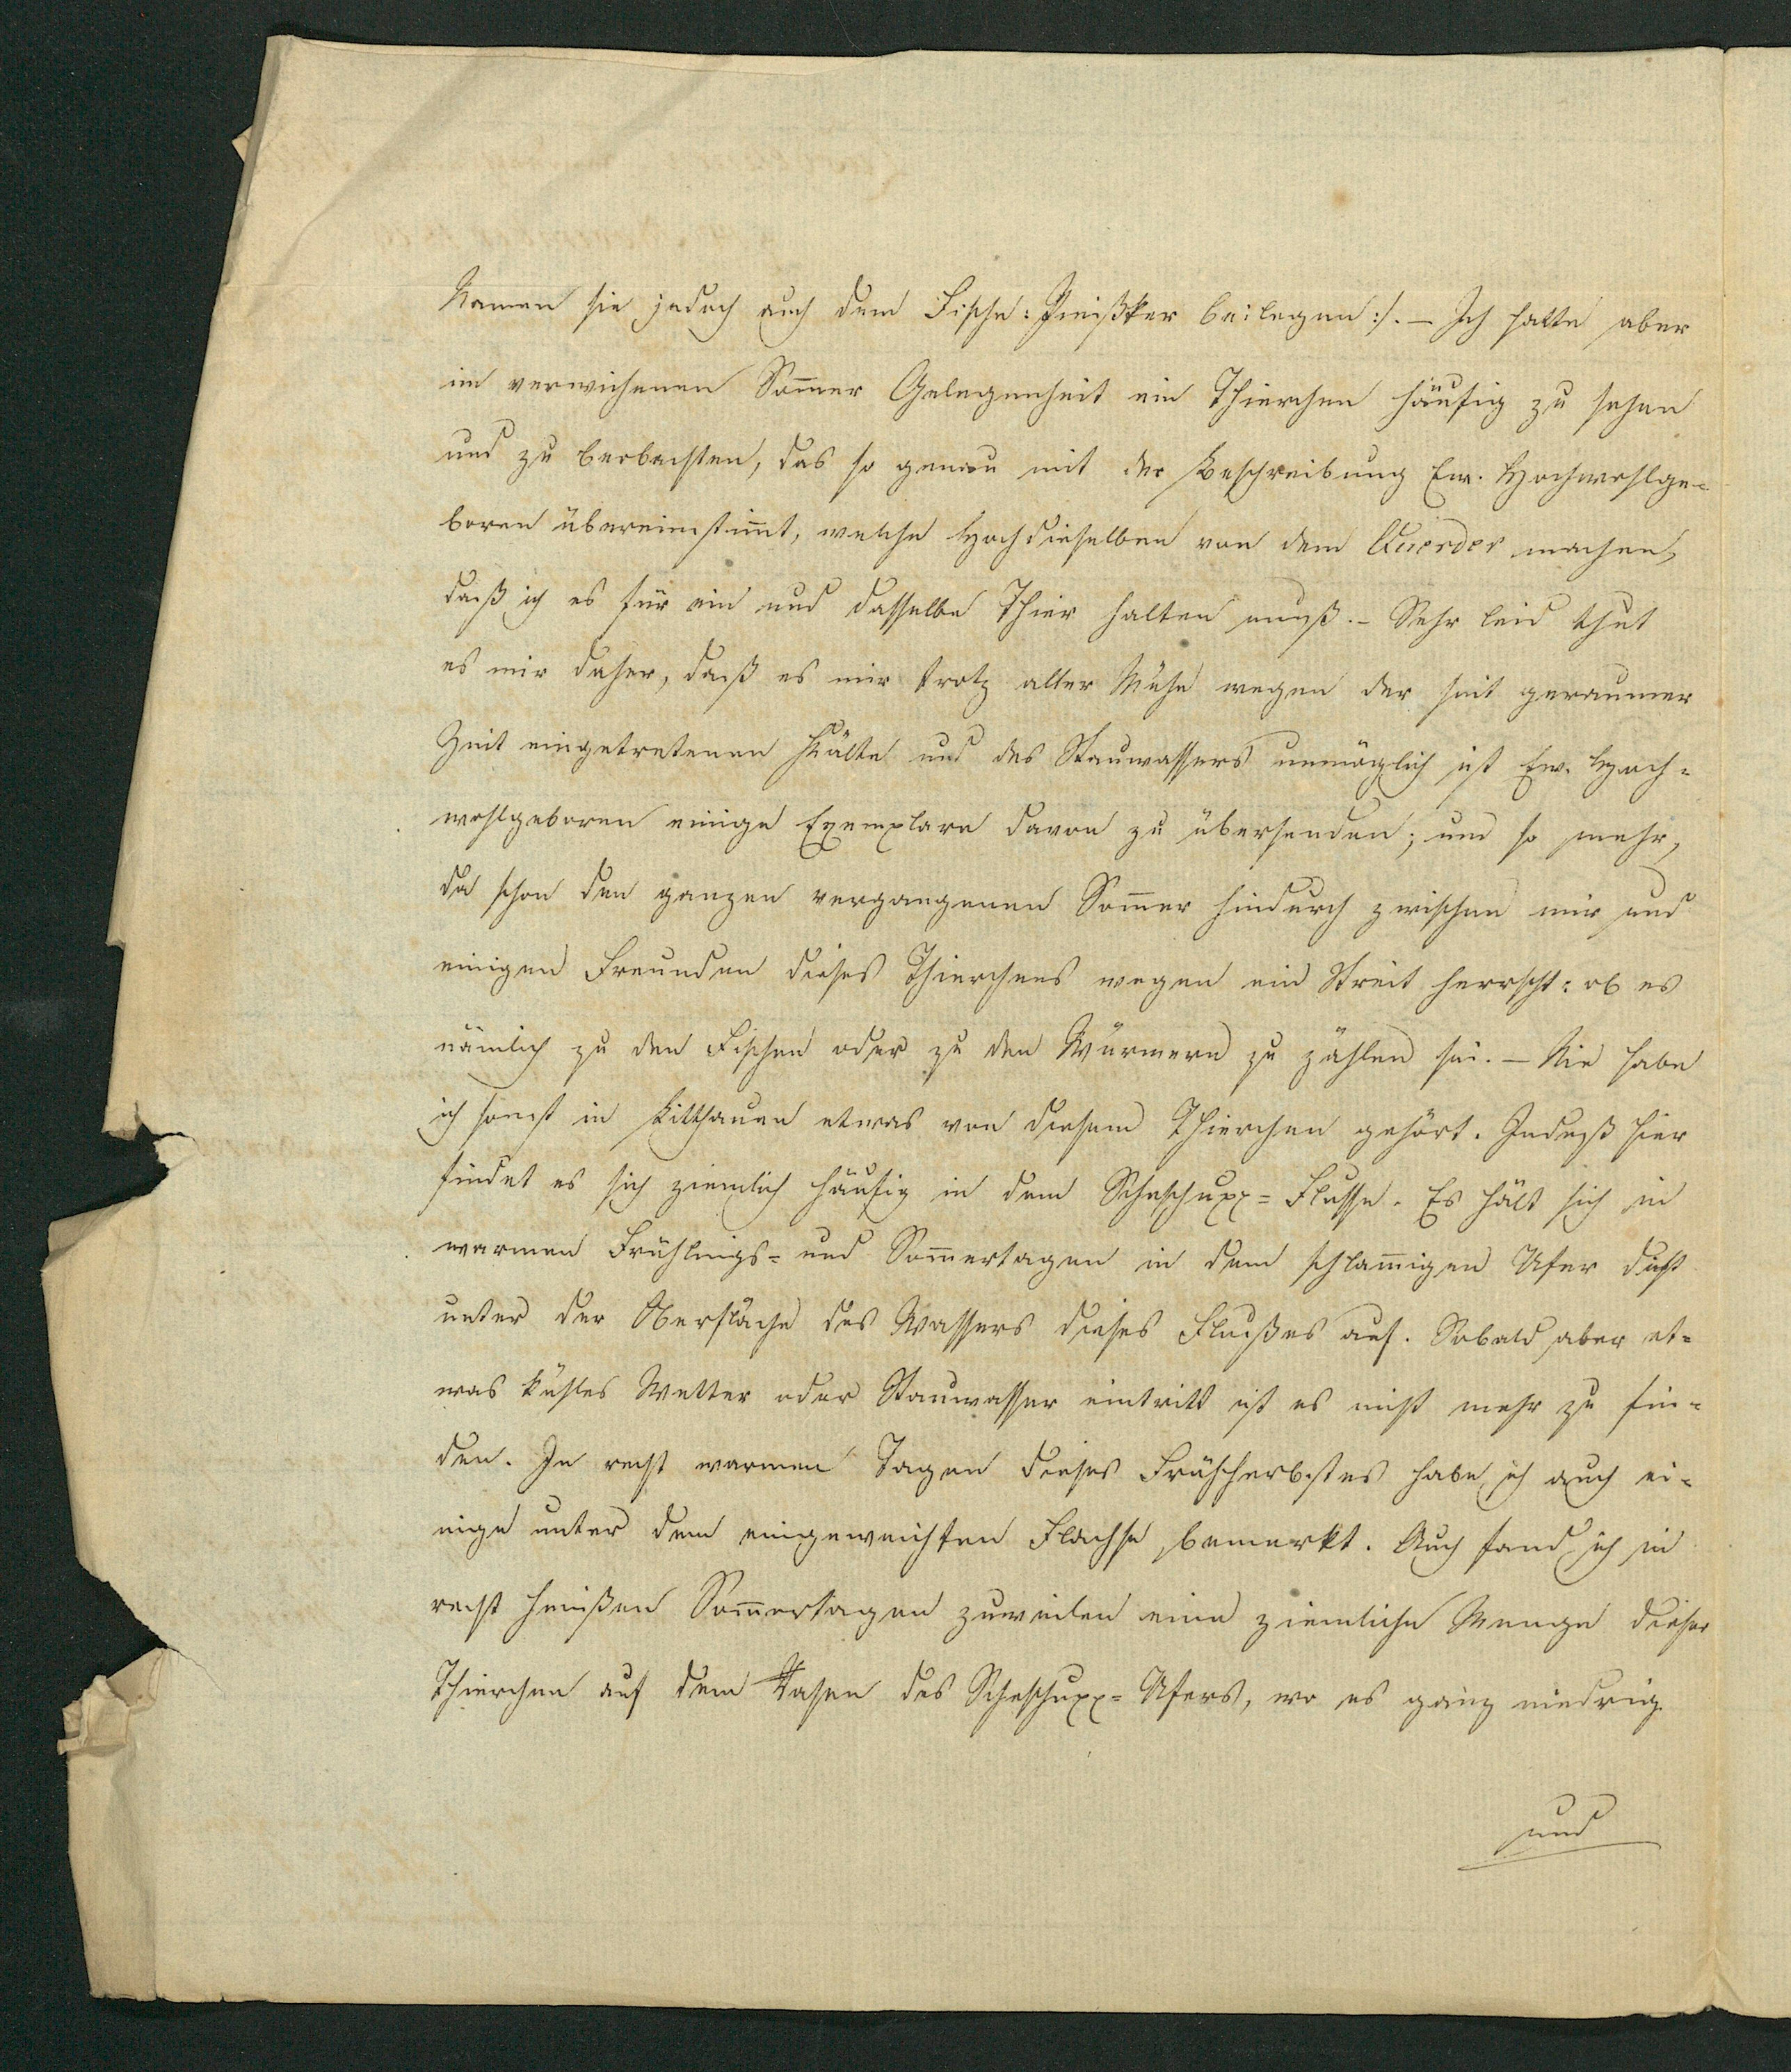 Namen sie jedoch auch dem Fische: Peißker beilegen :/. — Ich hatte aber
im verwichenen Som̄er Gelegenheit ein Thierchen häufig zu sehen
und zu beobachten, das so genau mit der Beschreibung Ew. Hochwohlge=
boren übereinstim̄t, welche Hochdieselben von dem Querder machen,
daß ich es für ein und dasselbe Thier halten muß. – Sehr leid thut
es mir daher, daß es mir trotz aller Mühe wegen der seit geraumer
Zeit eingetretenen Kälte und des Stauwassers unmöglich ist Ew. Hoch=
wohlgeboren einige Exemplare davon zu übersenden; um so mehr,
da schon den ganzen vergangenen Som̄er hindurch zwischen mir und
einigen Freunden dieses Thierchens wegen ein Streit herrscht: ob es
nämlich zu den Fischen oder zu den Würmern zu zählen sei. — Nie habe
ich sonst in Litthauen etwas von diesem Thierchen gehört. Indeß hier
findet es sich ziemlich häufig in dem Scheschupp= Flusse. Es hält sich in
warmen Frühlings= und Som̄ertagen in dem schlam̄igen Ufer dicht
unter der Oberfläche des Wassers dieses Flußes auf. Sobald aber et=
was kühles Wetter oder Stauwasser eintritt ist es nicht mehr zu fin=
den. In recht warmen Tagen dieses Frühherbstes habe ich auch ei=
nige unter dem eingeweichten Flachse bemerkt. Auch fand ich in
recht heißen Som̄ertagen zuweilen eine ziemliche Menge dieser
Thierchen auf dem Rasen des Scheschupp= Ufers, wo es ganz niedrig
und